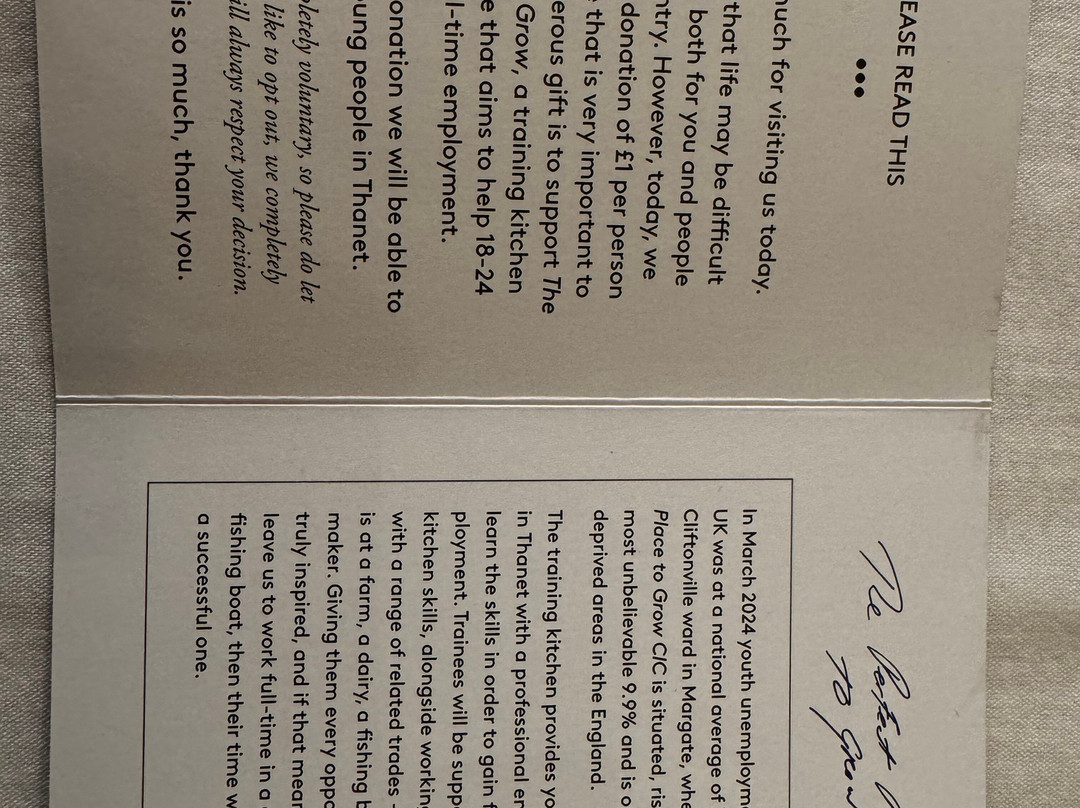 EASE READ THIS
•••
uch for visiting us today.
that life may be difficult
both for you and people
ntry. However, today, we
donation of £1 per person
that is very important to
erous gift is to support The
Grow, a training kitchen
e that aims to help 18-24
l-time employment.
onation we will be able to
ung people in Thanet.
pletely voluntary, so please do let
like to opt out, we completely
ill always respect your decision.
is so much, thank you.
The Perfect
to Grow
In March 2024 youth unemploym
UK was at a national average of
Cliftonville ward in Margate, whe
Place to Grow CIC is situated, ris
most unbelievable 9.9% and is o
deprived areas in the England.
The training kitchen provides yo
in Thanet with a professional en
learn the skills in order to gain f
ployment. Trainees will be supp
kitchen skills, alongside working
with a range of related trades -
is at a farm, a dairy, a fishing b
maker. Giving them every oppo
truly inspired, and if that mean
leave us to work full-time in a
fishing boat, then their time w
a successful one.